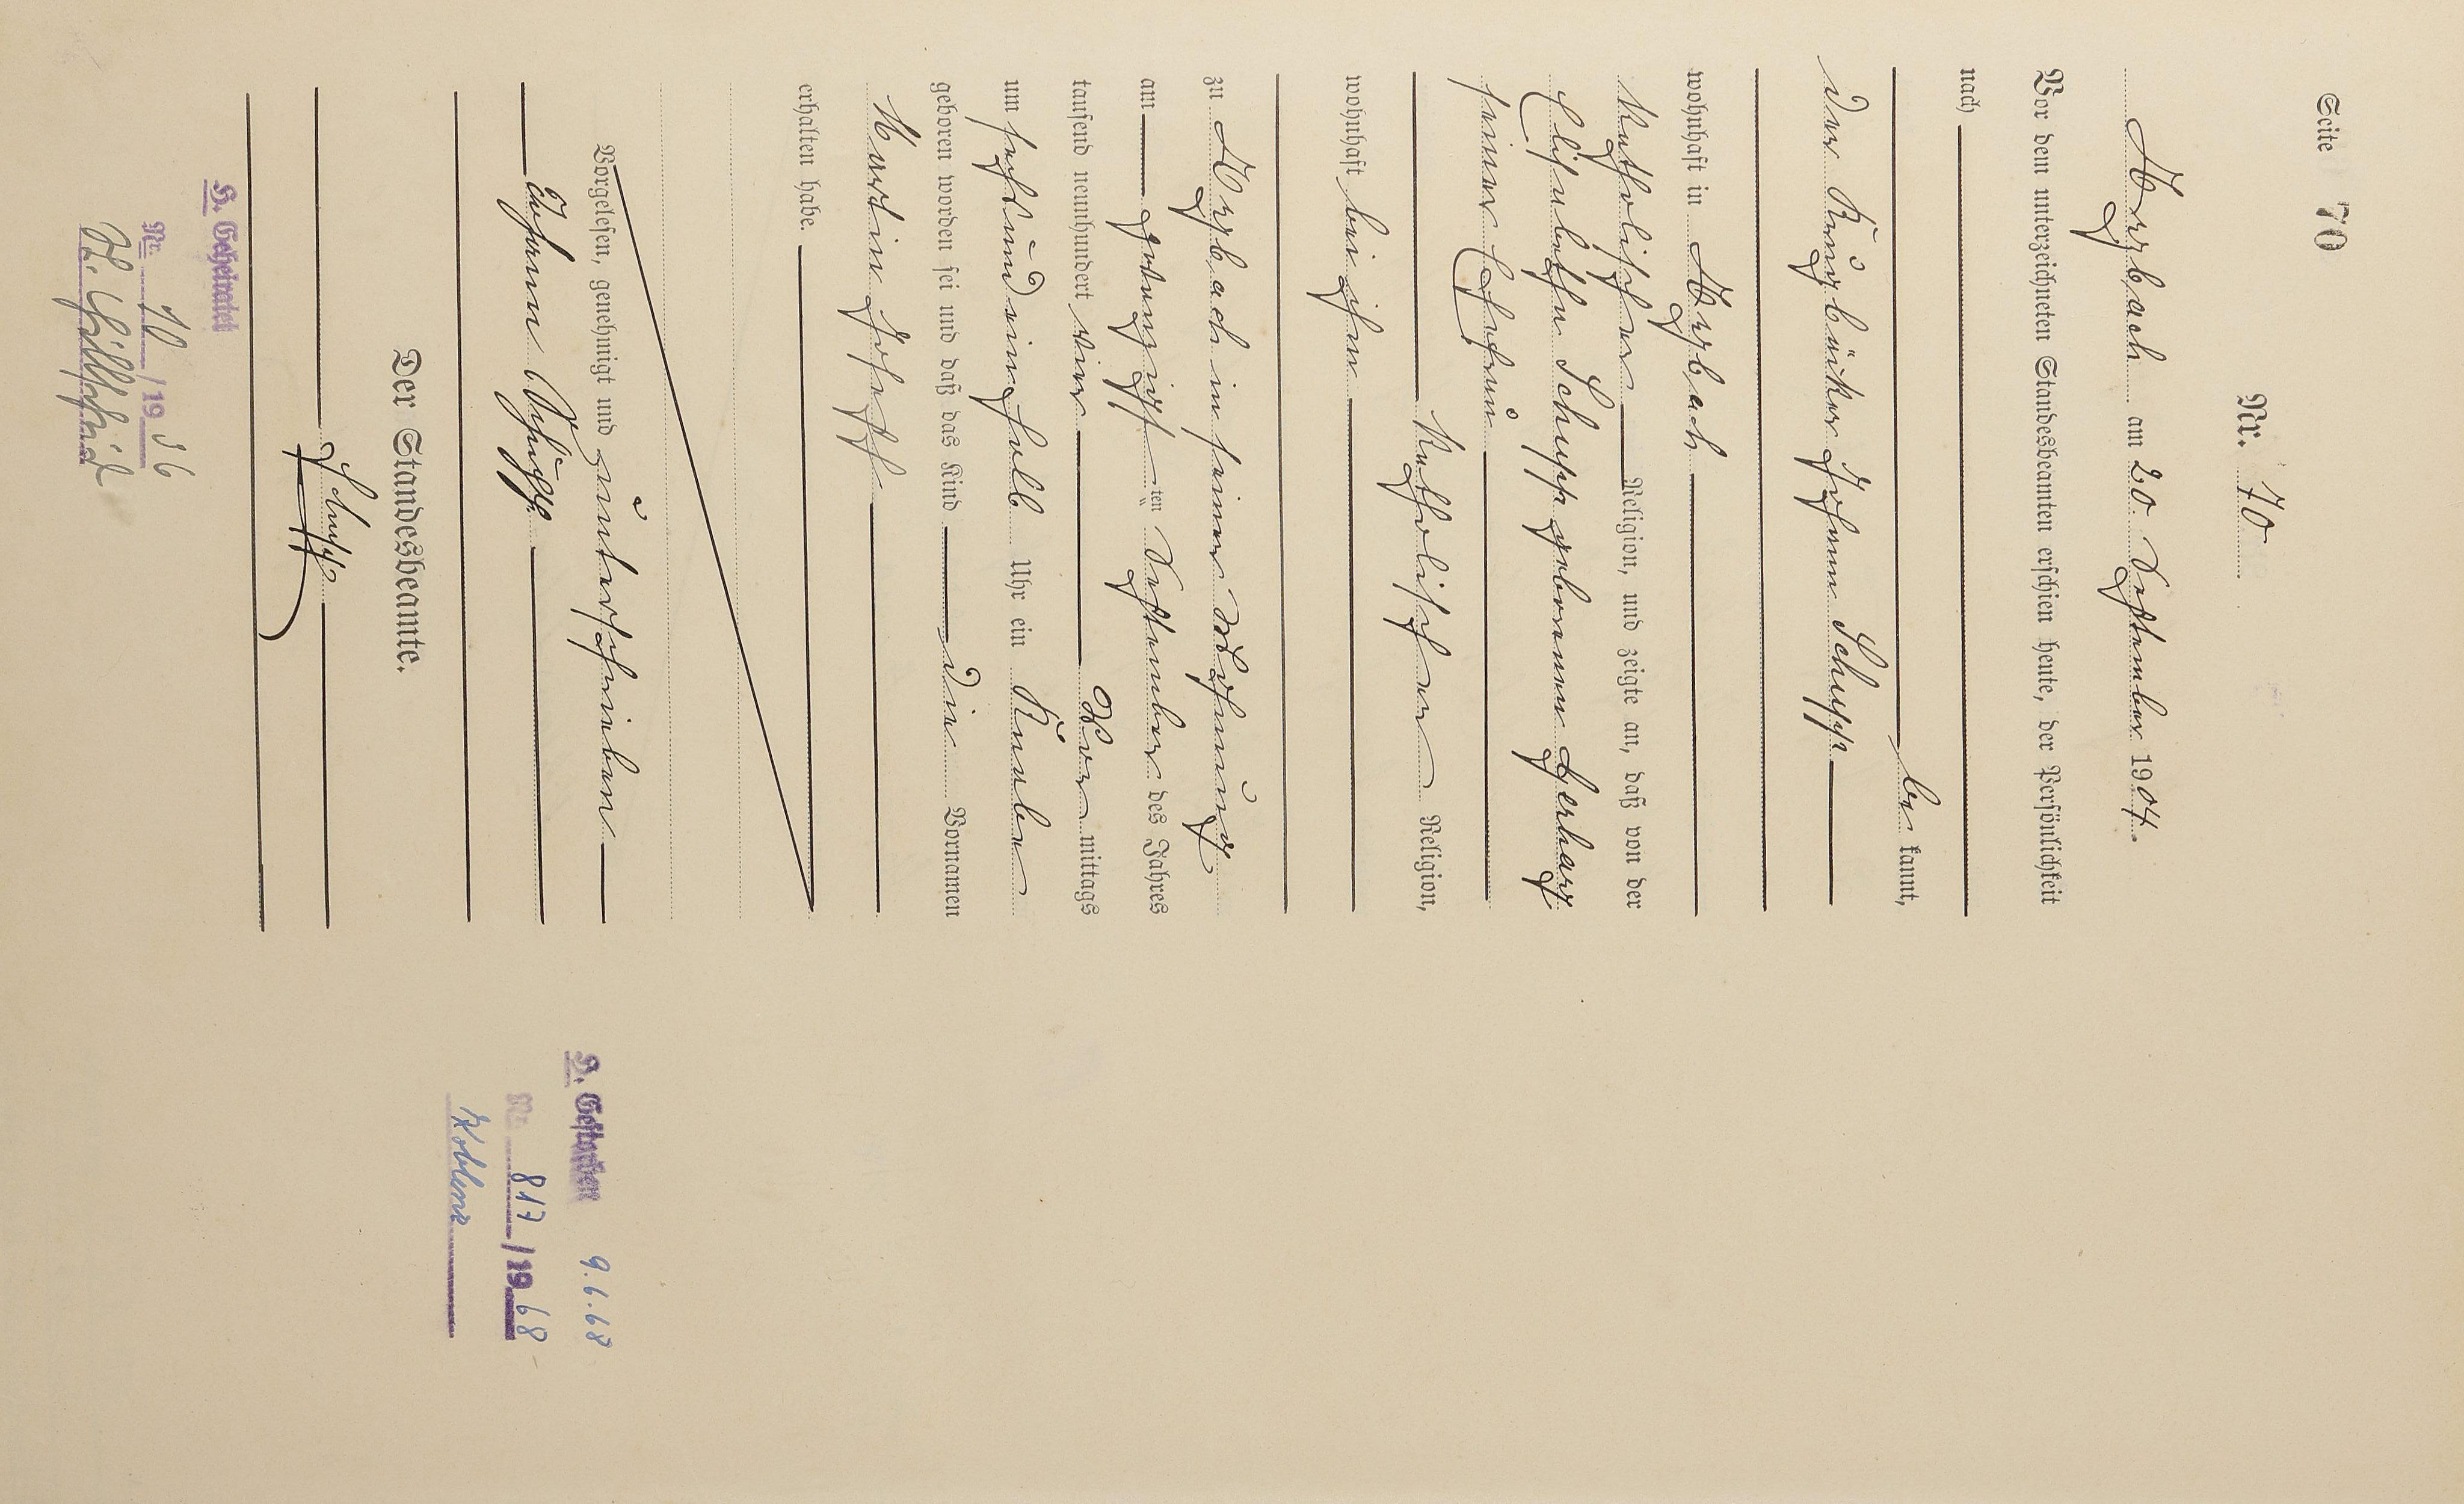 Seite 70
Nr. 70
am 20 September 1904.
Vor dem unterzeichneten Standesbeamten erschien heute, der Persönlichkeit
nach
be kannt,
der Johann Schupp
wohnhaft in
katholischer Religion, und zeigte an, daß von der
Elisabetha Schupp geborenen Gerharz
seiner Ehefrau
katholischer Religion,
wohnhaft bei ihm
zu in seiner Wohnung
am zwanzigst ten September des Jahres
tausend neunhundert vier Vor mittags
um sechs und ein halb Uhr ein Knabe
geboren worden sei und daß das Kind die Vornamen
Martin Joseph
erhalten habe.
Vorgelesen, genehmigt und unterschrieben
Johann Schupp
Der Standesbeamte.
Schupp
H. Geheiratet
Nr. 10/1936
D. Gestorben 9.6.68
Nr. 817/1968
Koblenz